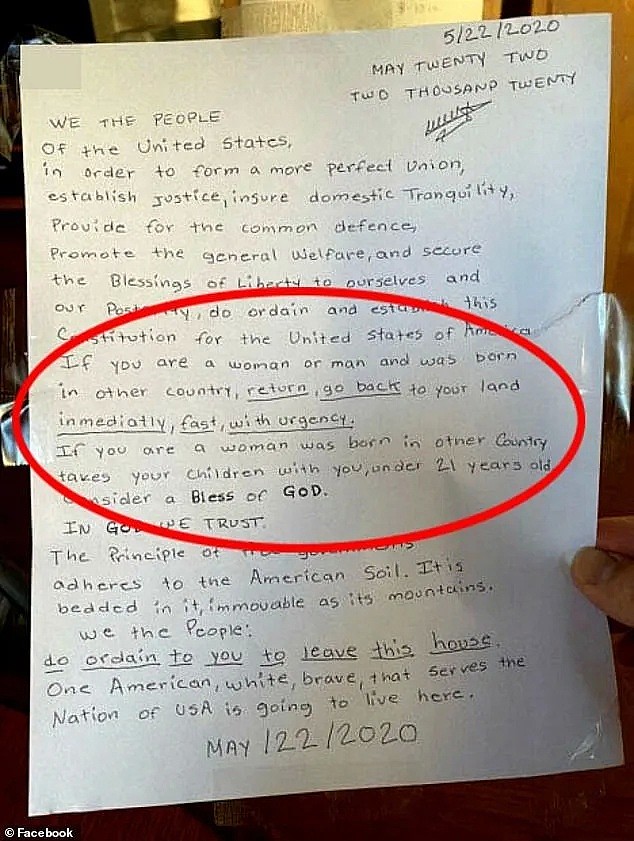 5/22/2020
MAY TWENTY TWO
TWO THOUSAND TWENTY
WE THE PEOPLE
Of the United States,
in order to form a more perfect Union,
establish Justice, insure domestic Tranquility,
Provide for the common defence,
Promote the general Welfare, and secure
the Blessings of Liberty to ourselves and
our Posterity, do ordain and establish this
Constitution for the United States of America
If you are a woman or man and was born
in other country, return, go back to your land
inmediatly, fast, with urgency.
If you are a woman was born in other Country
takes your children with you, under 21 years old
Consider a Bless of GOD.
IN GOD WE TRUST.
The Principle of free governments
adheres to the American Soil. It is
bedded in it, immovable as its mountains.
we the People:
do ordain to you to leave this house.
One American, white, brave, that serves the
Nation of USA is going to live here.
MAY /22/2020
© Facebook